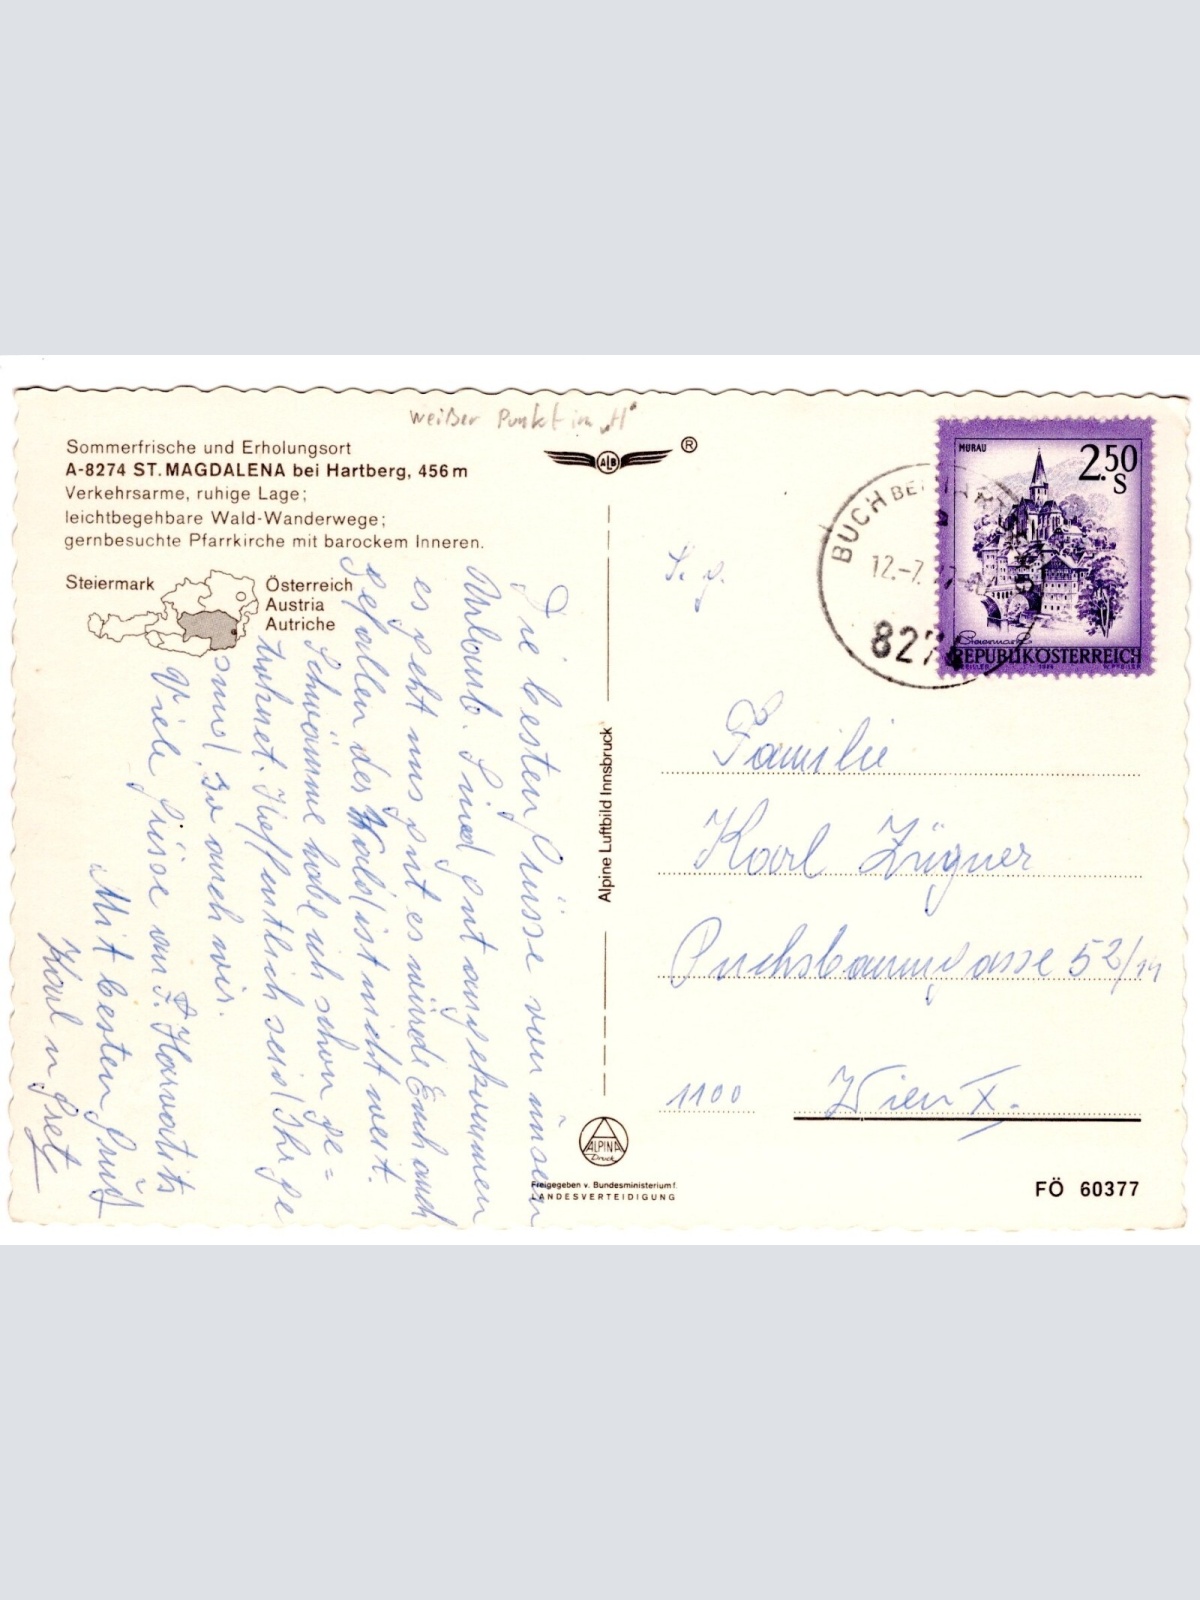 weißer Punkt im „H“
Sommerfrische und Erholungsort
A-8274 ST. MAGDALENA bei Hartberg, 456 m
Verkehrsarme, ruhige Lage;
leichtbegehbare Wald-Wanderwege;
gernbesuchte Pfarrkirche mit barockem Inneren.
Steiermark
Österreich
Austria
Autriche
Die besten Grüsse von unserem
Urlaub. Sind gut angekommen
es geht uns gut es würde Euch auch
gefallen der Wald ist nicht weit.
Schwämme habe ich schon ge=
Hoffentlich seid Ihr ge
sund, so auch wir.
Viele Grüsse an F. Horvatits
Mit besten Gruß
Karl u Gretl
ALB
®
Alpine Luftbild Innsbruck
ALPINA
Druck
Freigegeben v. Bundesministerium f.
LANDESVERTEIDIGUNG
BUCH BEI HARTBERG
12.-7.
827
MURAU
2.50
S
Steiermark
REPUBLIK ÖSTERREICH
S. g.
Familie
Karl Zügner
Puchsbaumgasse 52/14
1100 Wien X.
FÖ 60377